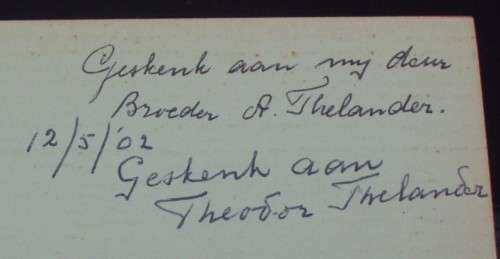 Geskenk aan my deur
Broeder A. Thelander.
12/5/'02
Geskenk aan
Theodor Thelander